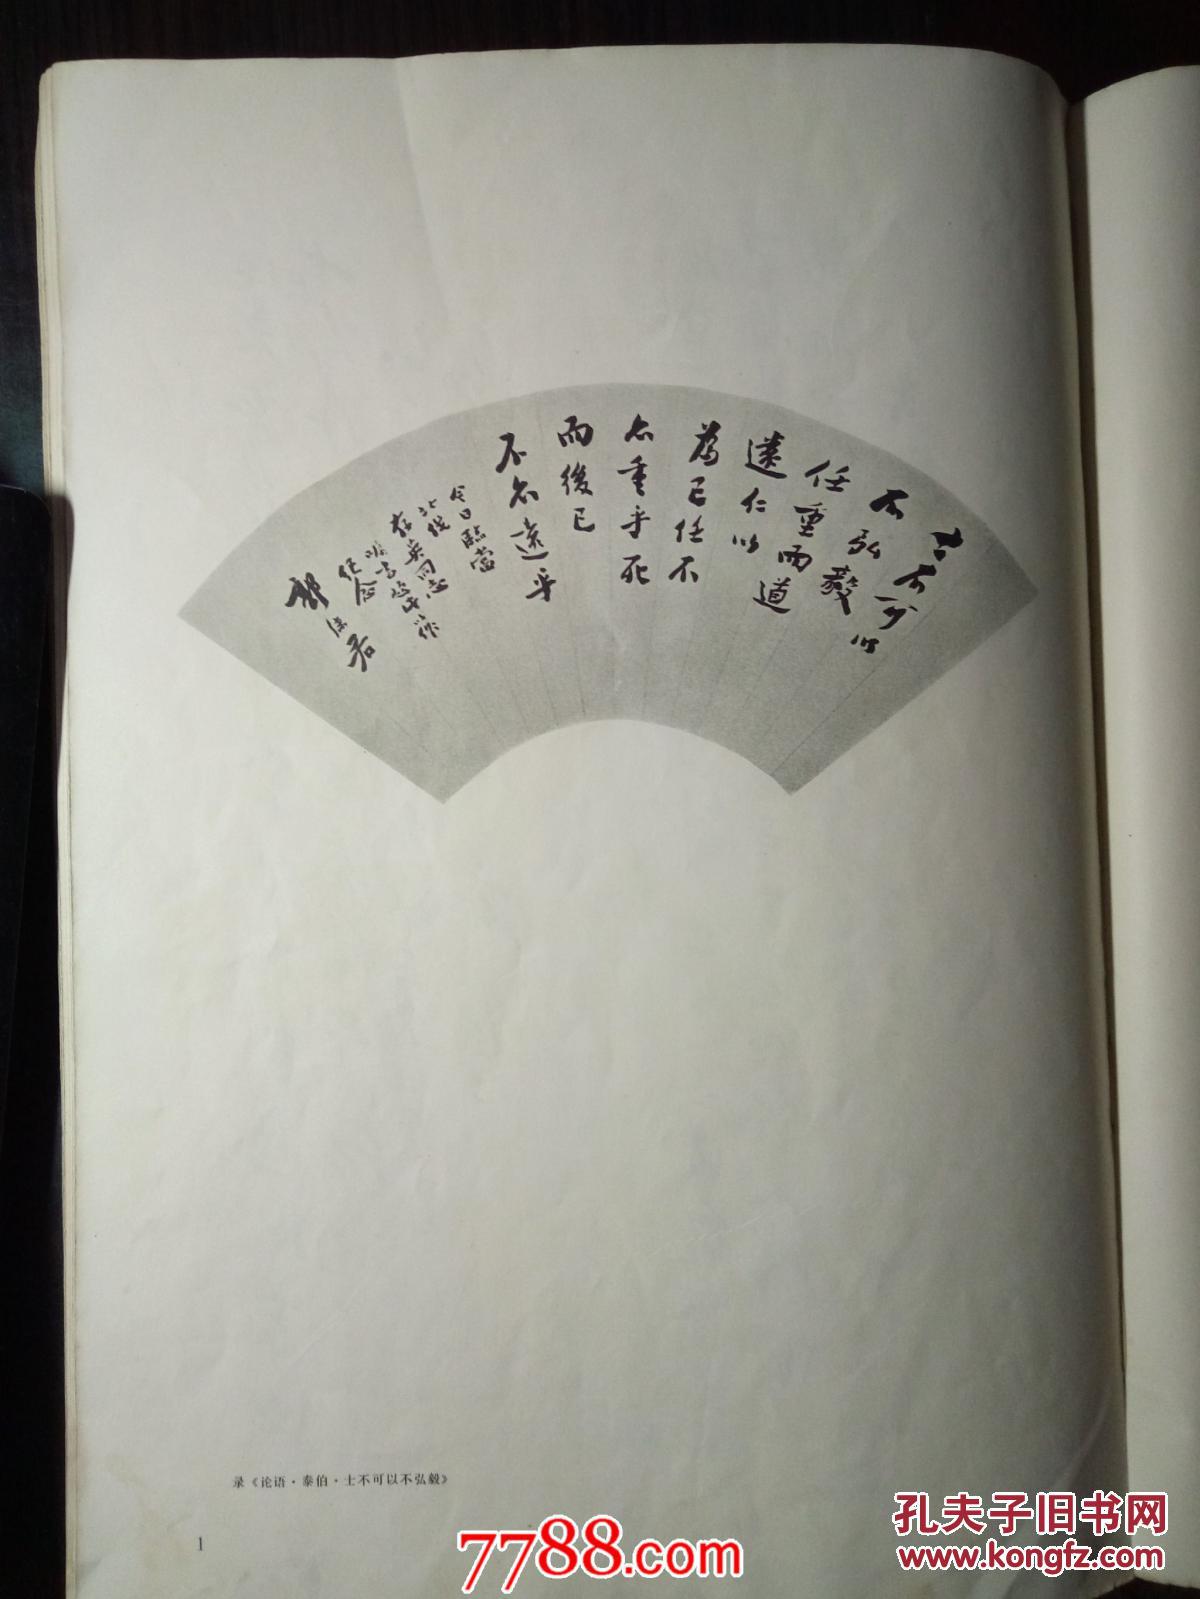 士不可以
不弘毅
任重而道
遠仁以
為己任不
亦重乎死
而後已
不亦遠乎
今日臨當
北伐
存英同志
嘱書此以作
纪念
郭沫若
录《论语·泰伯·士不可以不弘毅》
1
7788.com
孔夫子旧书网
www.kongfz.com